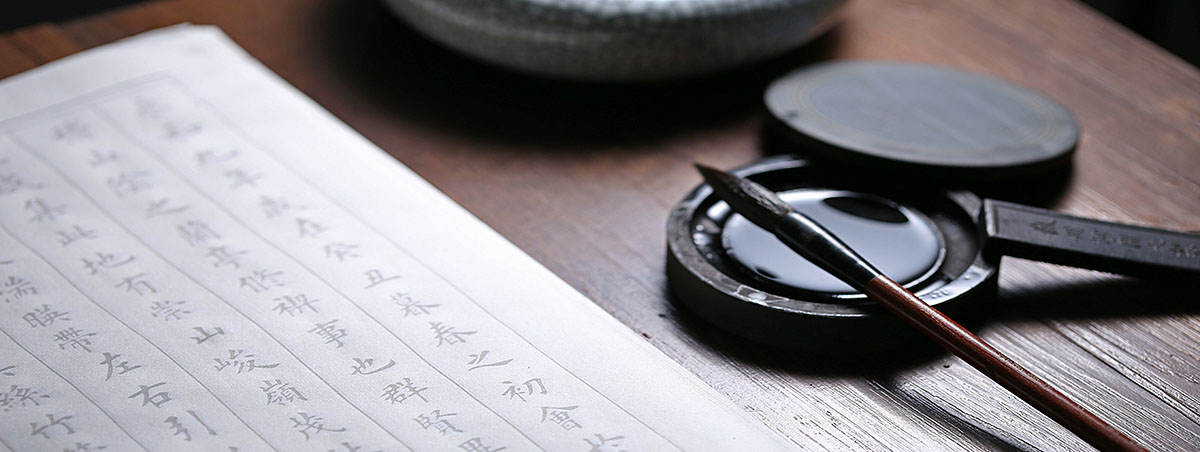 永和九年歲在癸丑暮春之初會於
稽山陰之蘭亭修禊事也群賢畢
咸集此地有崇山峻嶺茂
湍映帶左右引
絲竹